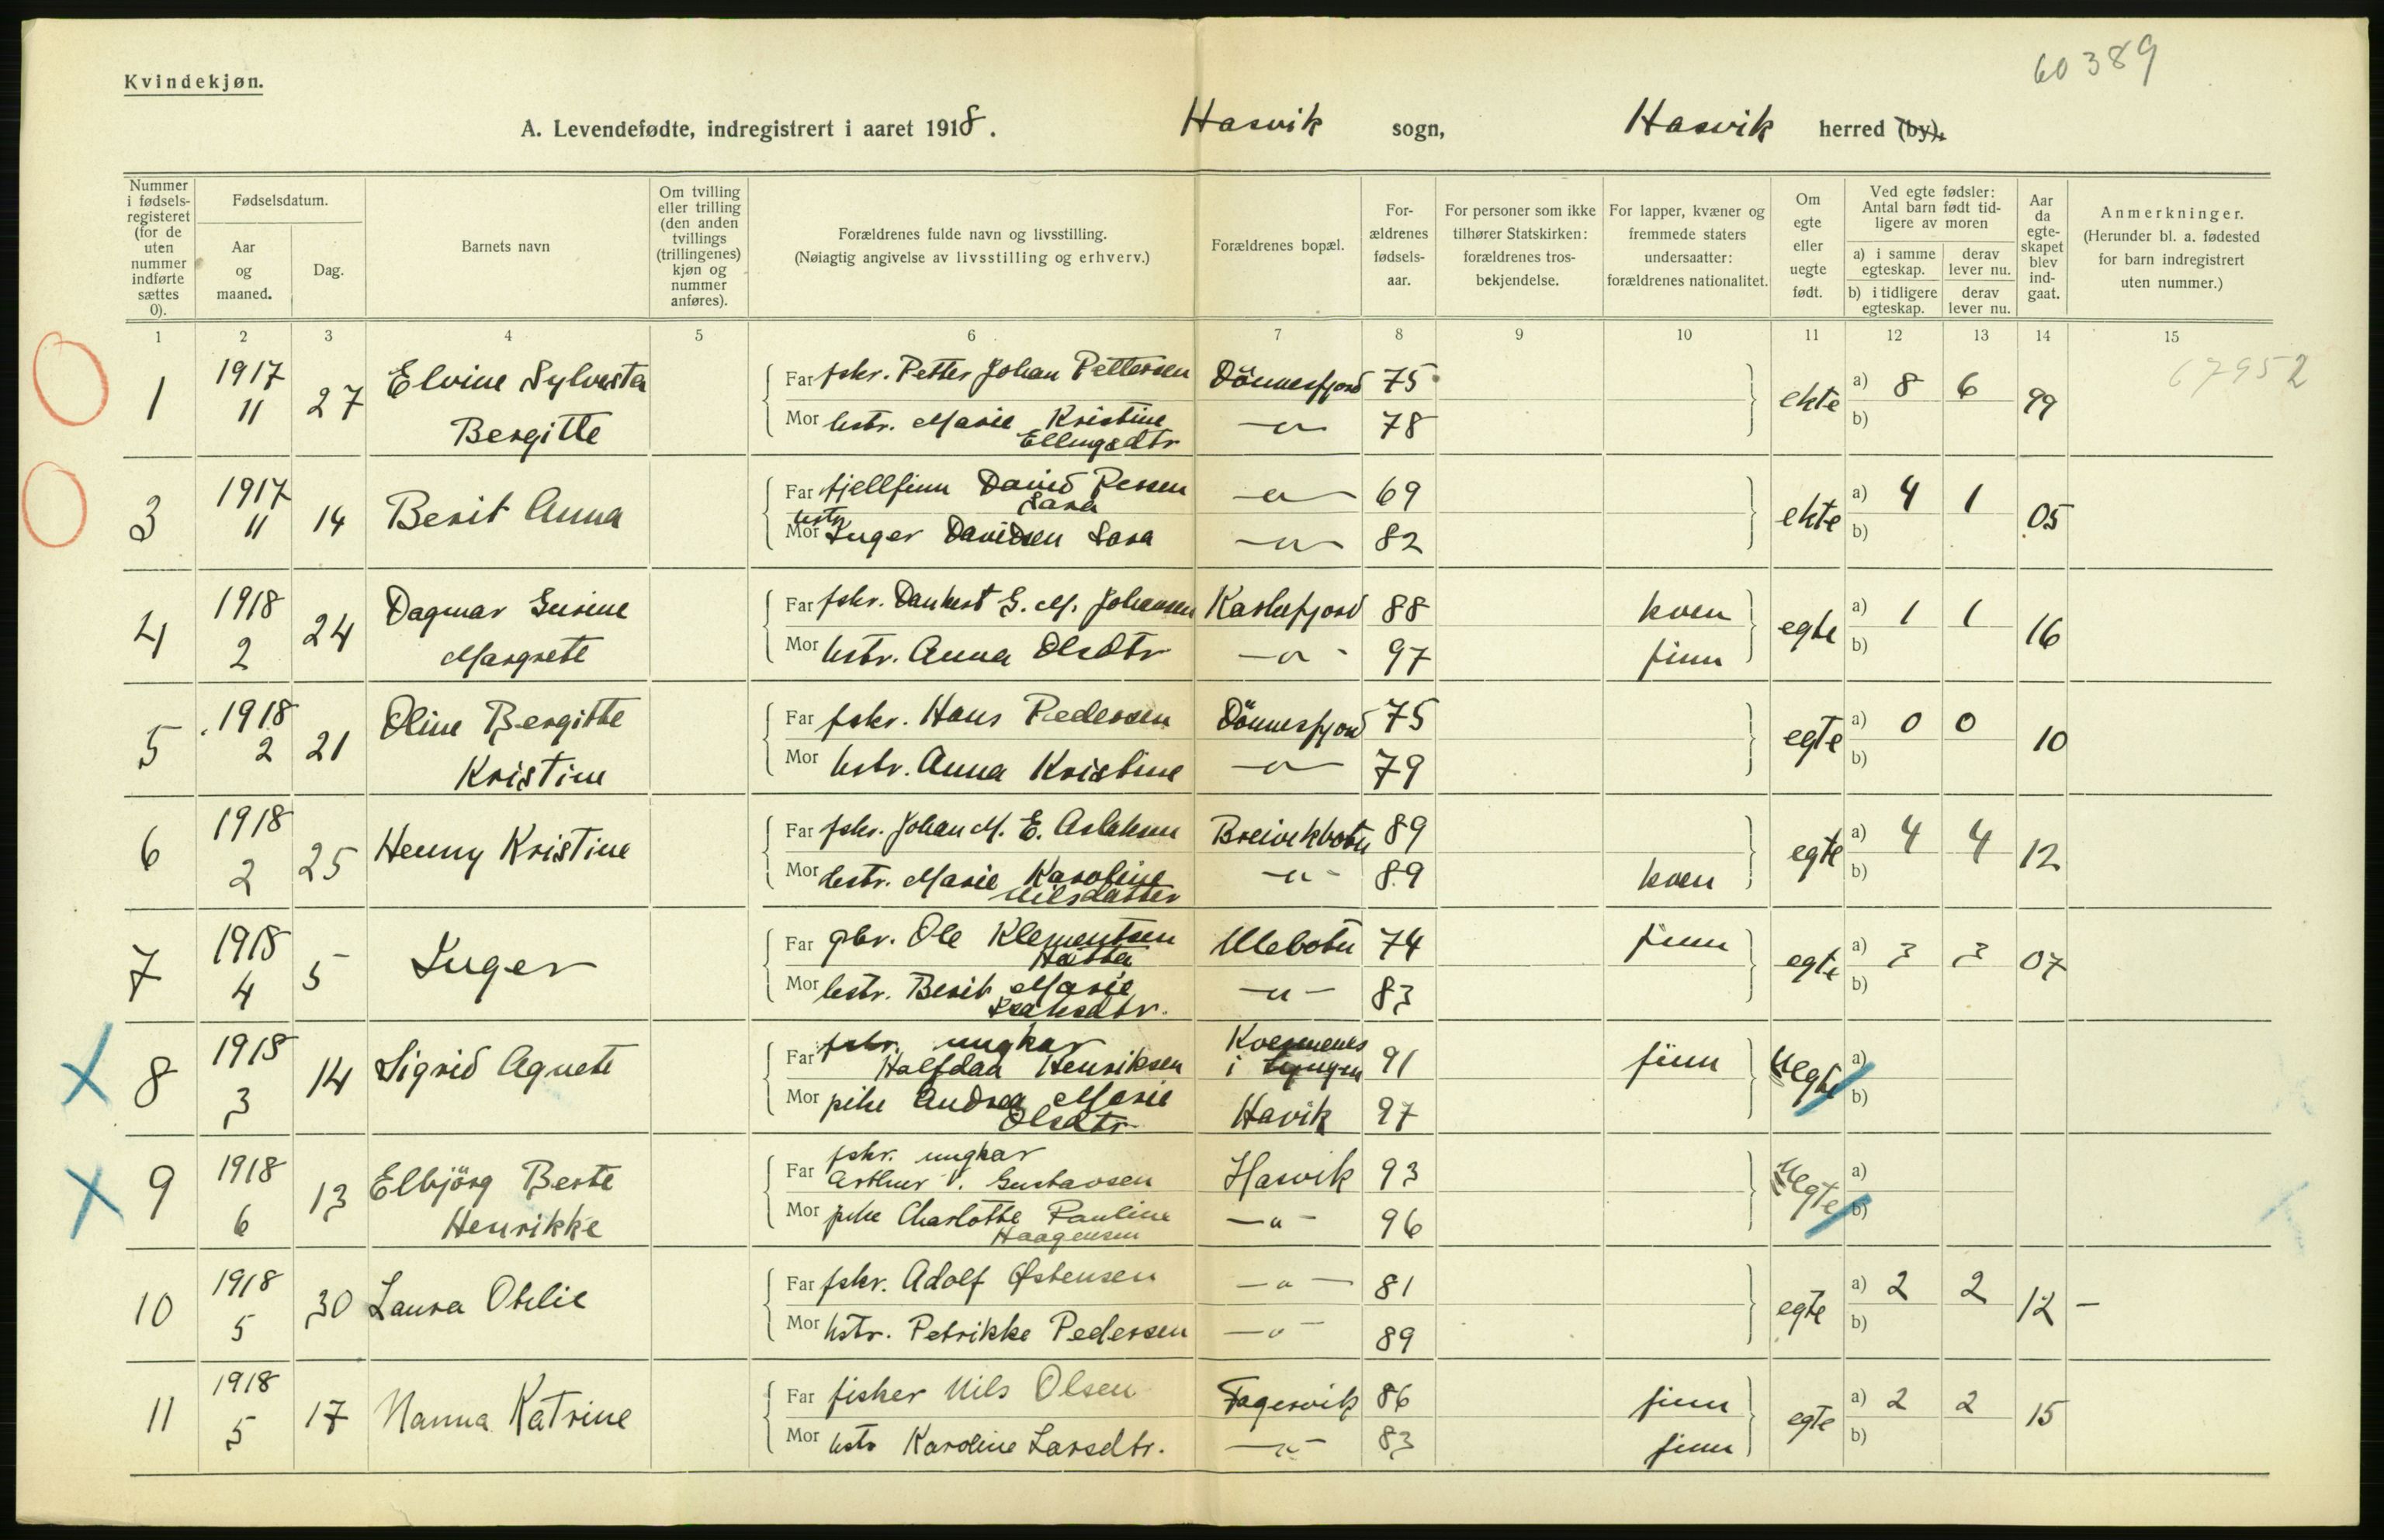 60389
Kvindekjøn.
A. Levendefødte, indregistrert i aaret 1918. Hasvik sogn, Hasvik herred (by).
Nummer i fødselsregisteret (for de uten nummer indførte sættes 0).
Fødselsdatum.
Aar og maaned.
Dag.
Barnets navn
Om tvilling eller trilling (den anden tvillings (trillingenes) kjøn og nummer anføres).
Forældrenes fulde navn og livsstilling.
(Nøiagtig angivelse av livsstilling og erhverv.)
Forældrenes bopæl.
For-ældrenes fødsels-aar.
For personer som ikke tilhører Statskirken: forældrenes tros-bekjendelse.
For lapper, kvæner og fremmede staters undersaatter: forældrenes nationalitet.
Om egte eller uegte født.
Ved egte fødsler: Antal barn født tid-ligere av moren
a) i samme egteskap. derav lever nu.
b) i tidligere egteskap. derav lever nu.
Aar da egte-skapet blev ind-gaat.
Anmerkninger.
(Herunder bl. a. fødested for barn indregistrert uten nummer.)
1 2 3 4 5 6 7 8 9 10 11 12 13 14 15
67952
1 1917 11 27 Elvine Sylvesta Bergitte
Far fskr. Petter Johan Pettersen Dönnesfjord 75 ekte a) 8 6 99
Mor hstr. Marie Kristine Ellingsdtr —"— 78 b)
3 1917 11 14 Berit Anna
Far fjellfinn David Persen Sara —"— 69 ekte a) 4 1 05
Mor hstr Inger Davidsen Sara —"— 82 b)
4 1918 2 24 Dagmar Gurine Margrete
Far fskr. Dankert G. M. Johansen 88 kven egte a) 1 1 16
Mor hstr. Anna Olsdtr —"— 97 finn b)
5 1918 2 21 Oline Bergitte Kristine
Far fskr. Hans Pedersen Dönnesfjord 75 egte a) 0 0 10
Mor hstr. Anna Kristine —"— 79 b)
6 1918 2 25 Henny Kristine
Far fskr. Johan M. E. Aslaksen Breivikbotn 89 egte a) 4 4 12
Mor hstr. Marie Karoline Nilsdatter —"— 89 kven b)
7 1918 4 5 Inger
Far gbr. Ole Klementsen Hætta Ulebotn 74 finn egte a) 3 3 07
Mor hstr. Berit Marie Isaksdtr. —"— 83 b)
8 1918 3 14 Sigrid Agnete
Far fskr. ungkar Halfdan Henriksen Kvennenes i Lyngen 91 finn Uegte a)
Mor pike Andrea Marie Olsdtr Havik 97 b)
9 1918 6 13 Elbjörg Berte Henrikke
Far fskr. ungkar Arthur V. Gustavsen Hasvik 93 Uegte a)
Mor pike Charlotte Pauline Haagensen —"— 96 b)
10 1918 5 30 Laura Otelie
Far fskr. Adolf Østensen —"— 81 egte a) 2 2 12 —
Mor hstr. Petrikke Pedersen —"— 89 b)
11 1918 5 17 Nanna Katrine
Far fisker Nils Olsen Fagervik 86 finn egte a) 2 2 15
Mor hstr Karoline Larsdtr. —"— 83 finn b)